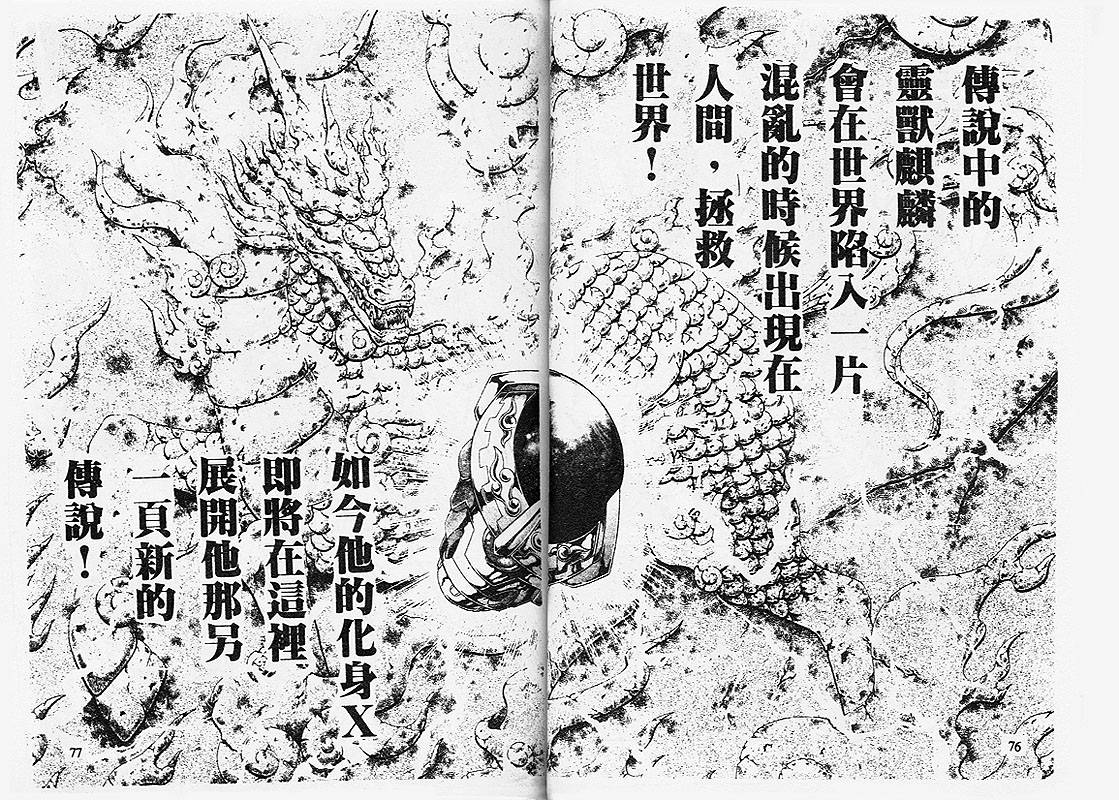 傳說中的
靈獸麒麟
會在世界陷入一片
混亂的時候出現在
人間，拯救
世界！
如今他的化身X
即將在這裡
展開他那另
一頁新的
傳說！
76
77